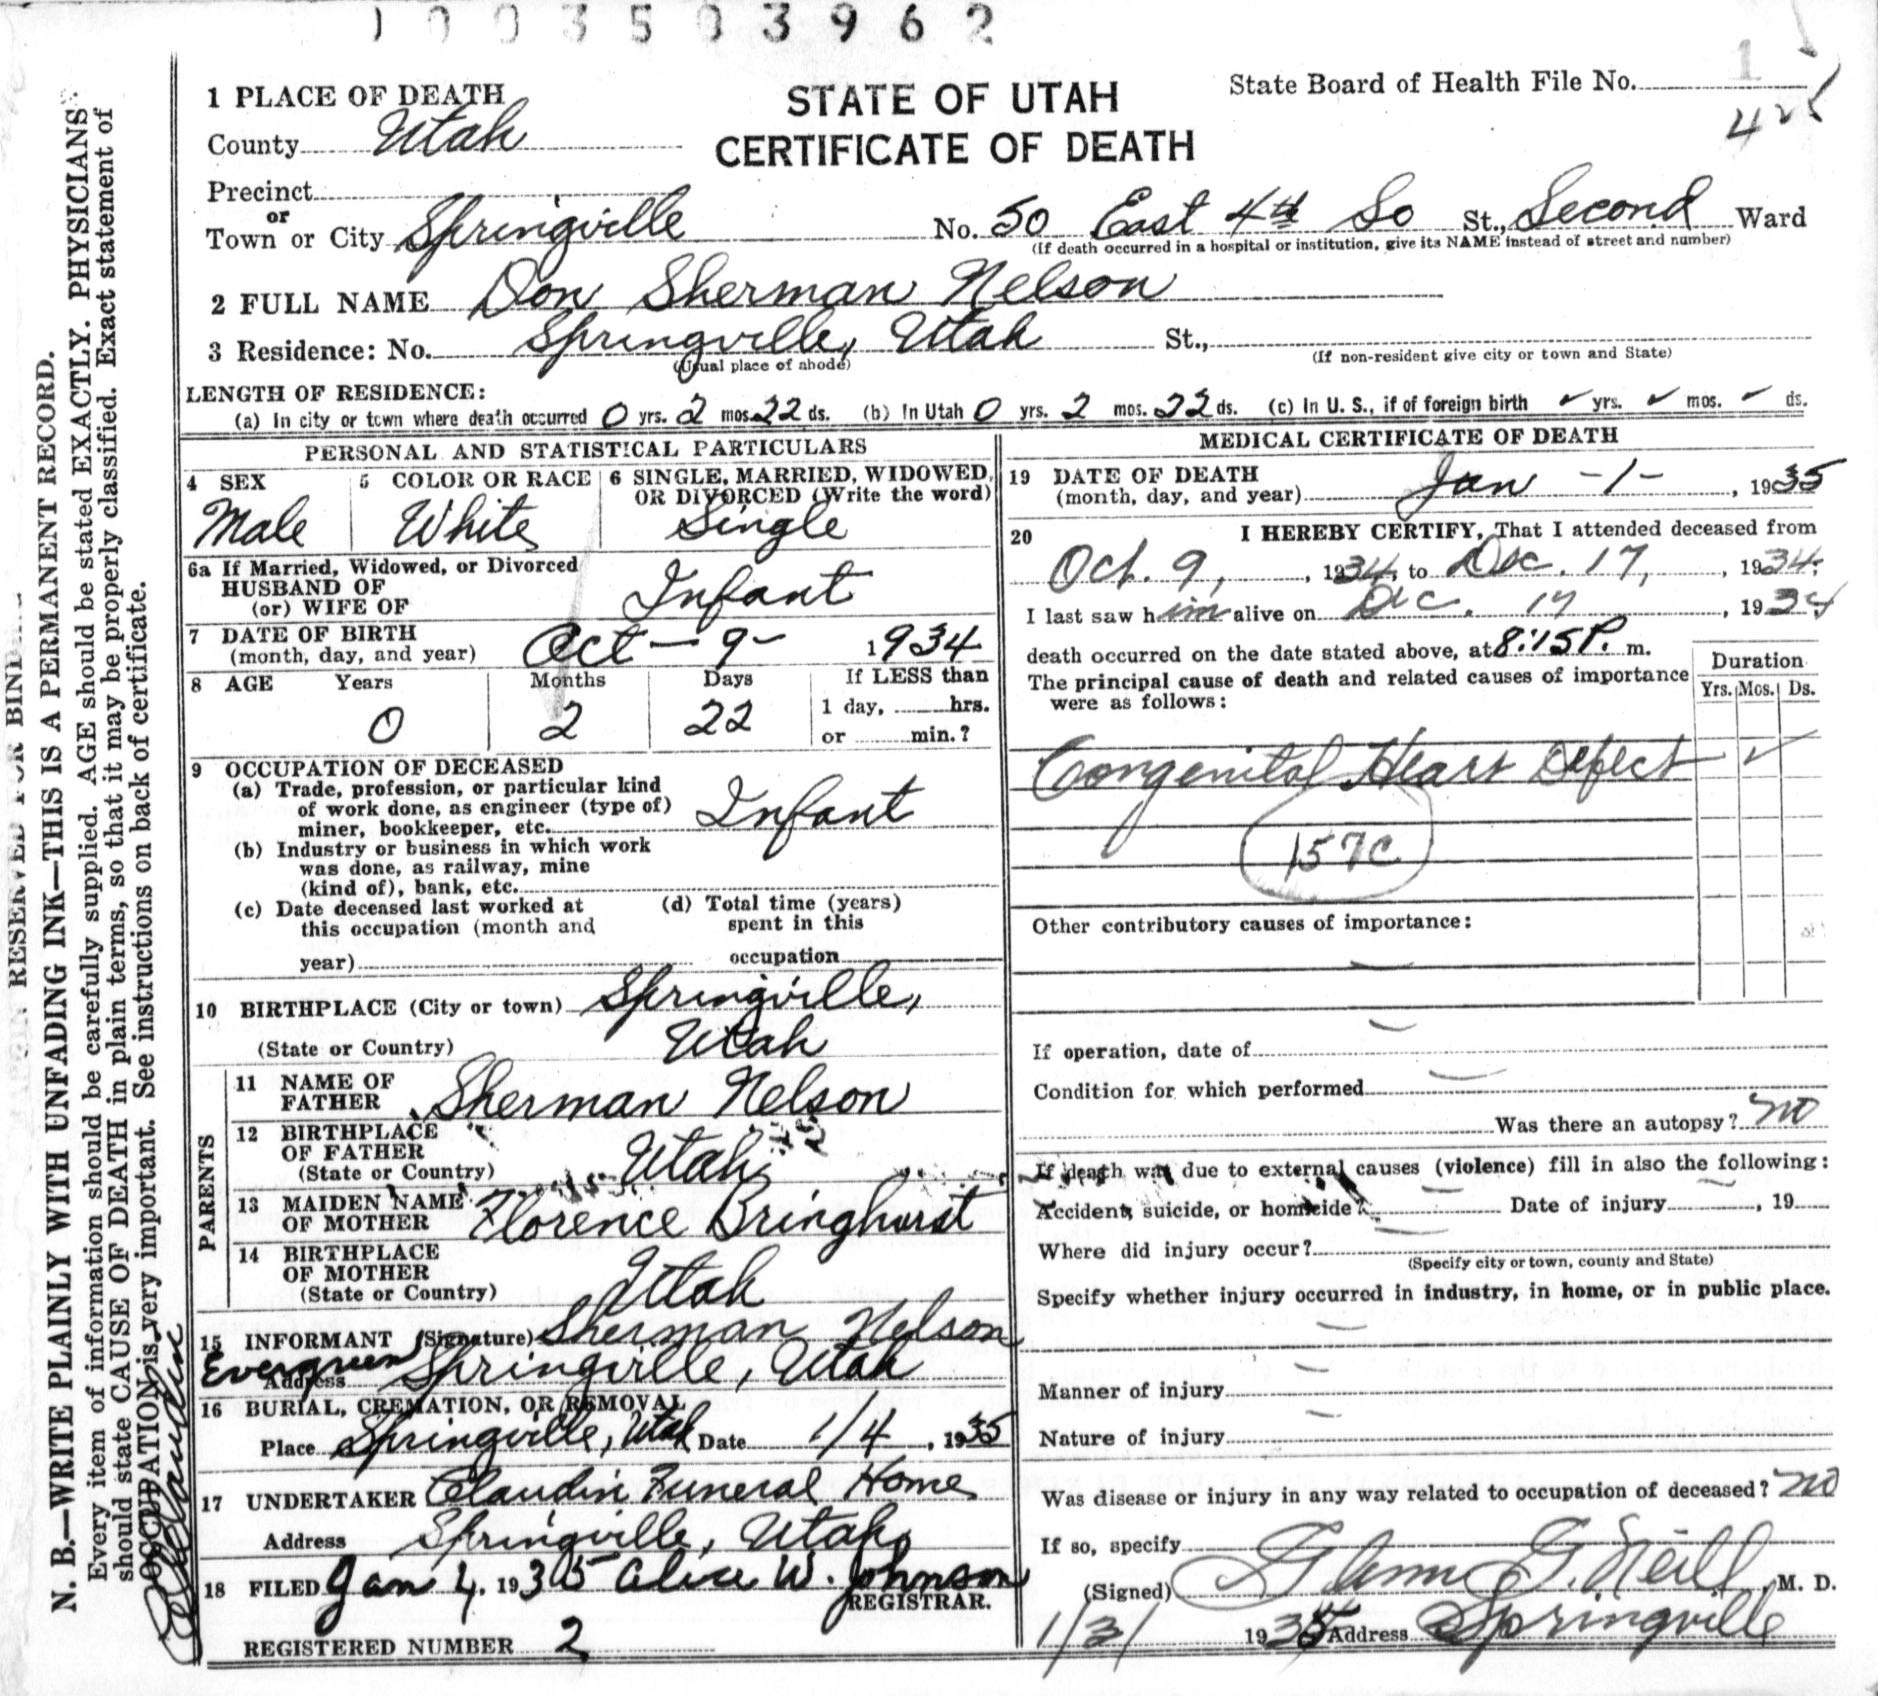 1003503962
1 PLACE OF DEATH
STATE OF UTAH
CERTIFICATE OF DEATH
State Board of Health File No. 1
425
County Utah
Precinct
or
Town or City Springville No. 50 East 4th So St., Second Ward
(If death occurred in a hospital or institution, give its NAME instead of street and number)
2 FULL NAME Don Sherman Nelson
3 Residence: No. Springville, Utah St.,
(Usual place of abode) (If non-resident give city or town and State)
LENGTH OF RESIDENCE:
(a) In city or town where death occurred 0 yrs. 2 mos. 22 ds. (b) In Utah 0 yrs. 2 mos. 22 ds. (c) In U. S., if of foreign birth ✓ yrs. ✓ mos. ✓ ds.
PERSONAL AND STATISTICAL PARTICULARS
4 SEX
Male
5 COLOR OR RACE
White
6 SINGLE, MARRIED, WIDOWED,
OR DIVORCED (Write the word)
Single
6a If Married, Widowed, or Divorced
HUSBAND OF
(or) WIFE OF Infant
7 DATE OF BIRTH
(month, day, and year) Oct - 9 - 1934
8 AGE Years Months Days If LESS than
1 day, hrs.
0 2 22 or min.?
9 OCCUPATION OF DECEASED
(a) Trade, profession, or particular kind
of work done, as engineer (type of)
miner, bookkeeper, etc. Infant
(b) Industry or business in which work
was done, as railway, mine
(kind of), bank, etc.
(c) Date deceased last worked at
this occupation (month and
year)
(d) Total time (years)
spent in this
occupation
10 BIRTHPLACE (City or town) Springville,
(State or Country) Utah
PARENTS
11 NAME OF
FATHER Sherman Nelson
12 BIRTHPLACE
OF FATHER
(State or Country) Utah
13 MAIDEN NAME
OF MOTHER Florence Bringhurst
14 BIRTHPLACE
OF MOTHER
(State or Country) Utah
15 INFORMANT (Signature) Sherman Nelson
Evergreen
Address Springville, Utah
16 BURIAL, CREMATION, OR REMOVAL
Place Springville, Utah Date 1/4, 1935
17 UNDERTAKER Claudin Funeral Home
Address Springville, Utah
18 FILED Jan 4. 1935 Alice W. Johnson
REGISTRAR.
REGISTERED NUMBER 2
MEDICAL CERTIFICATE OF DEATH
19 DATE OF DEATH
(month, day, and year) Jan -1-, 1935
20 I HEREBY CERTIFY, That I attended deceased from
Oct. 9, , 1934, to Dec. 17, , 1934;
I last saw him alive on Dec. 17, 1934
death occurred on the date stated above, at 8:15 P. m.
The principal cause of death and related causes of importance
were as follows:
Duration
Yrs. Mos. Ds.
Congenital Heart Defect ✓
157C
Other contributory causes of importance:
If operation, date of
Condition for which performed
Was there an autopsy? no
If death was due to external causes (violence) fill in also the following:
Accident, suicide, or homicide? Date of injury , 19
Where did injury occur?
(Specify city or town, county and State)
Specify whether injury occurred in industry, in home, or in public place.
Manner of injury
Nature of injury
Was disease or injury in any way related to occupation of deceased? no
If so, specify
(Signed) Glenn G. Neill, M. D.
1/31 1935 Address Springville
N. B.—WRITE PLAINLY WITH UNFADING INK—THIS IS A PERMANENT RECORD.
Every item of information should be carefully supplied. AGE should be stated EXACTLY. PHYSICIANS
should state CAUSE OF DEATH in plain terms, so that it may be properly classified. Exact statement of
OCCUPATION is very important. See instructions on back of certificate.
RESERVED FOR